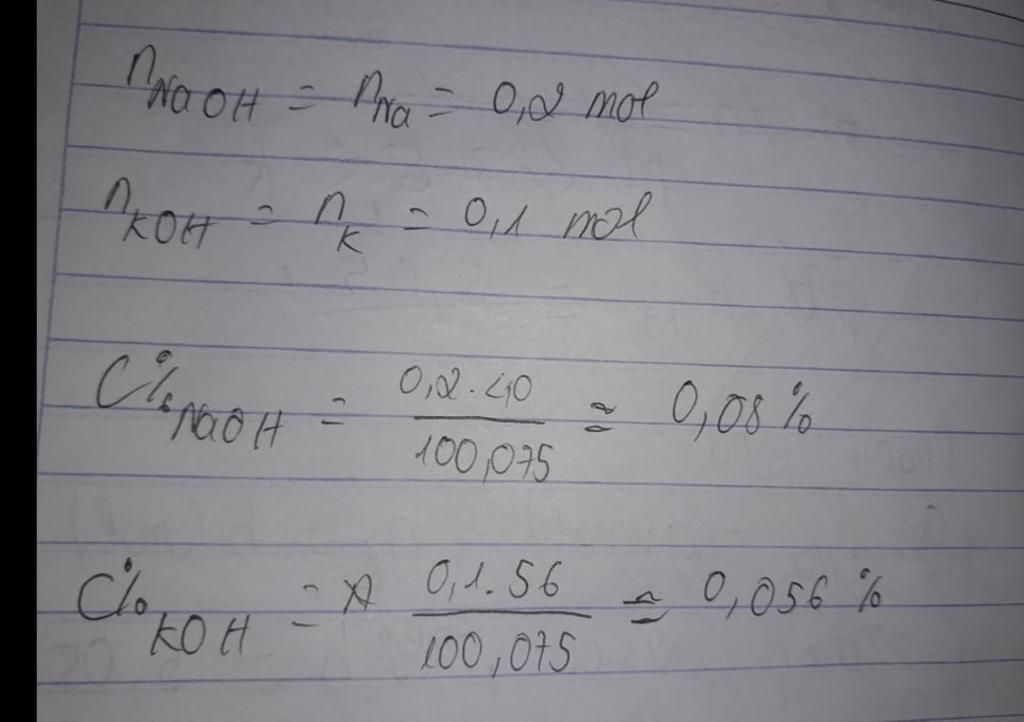 nNaOH = nNa = 0,2 mol
nKOH = nK = 0,1 mol
C%NaOH = 0,2.40 / 100,075 ≈ 0,08 %
C%KOH = 0,1.56 / 100,075 ≈ 0,056 %